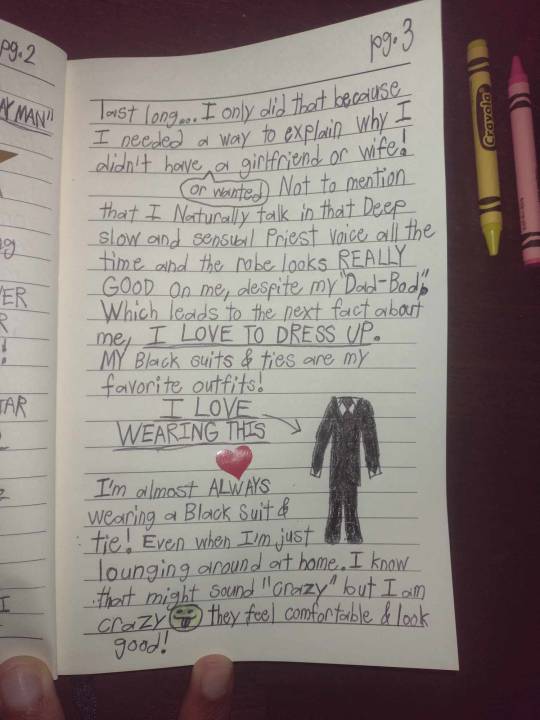 pg.2
pg.3
AY MAN"
last long... I only did that because
I needed a way to explain why I
didn't have a girlfriend or wife!
or wanted Not to mention
that I Naturally talk in that Deep
slow and sensual Priest voice all the
time and the robe looks REALLY
GOOD on me, despite my "Dad-Bod".
Which leads to the next fact about
me, I LOVE TO DRESS UP.
MY Black suits & ties are my
favorite outfits!
I LOVE
WEARING THIS
I'm almost ALWAYS
wearing a Black Suit &
tie! Even when I'm just
lounging around at home. I know
that might sound "crazy" but I am
crazy they feel comfortable & look
good!
Crayola